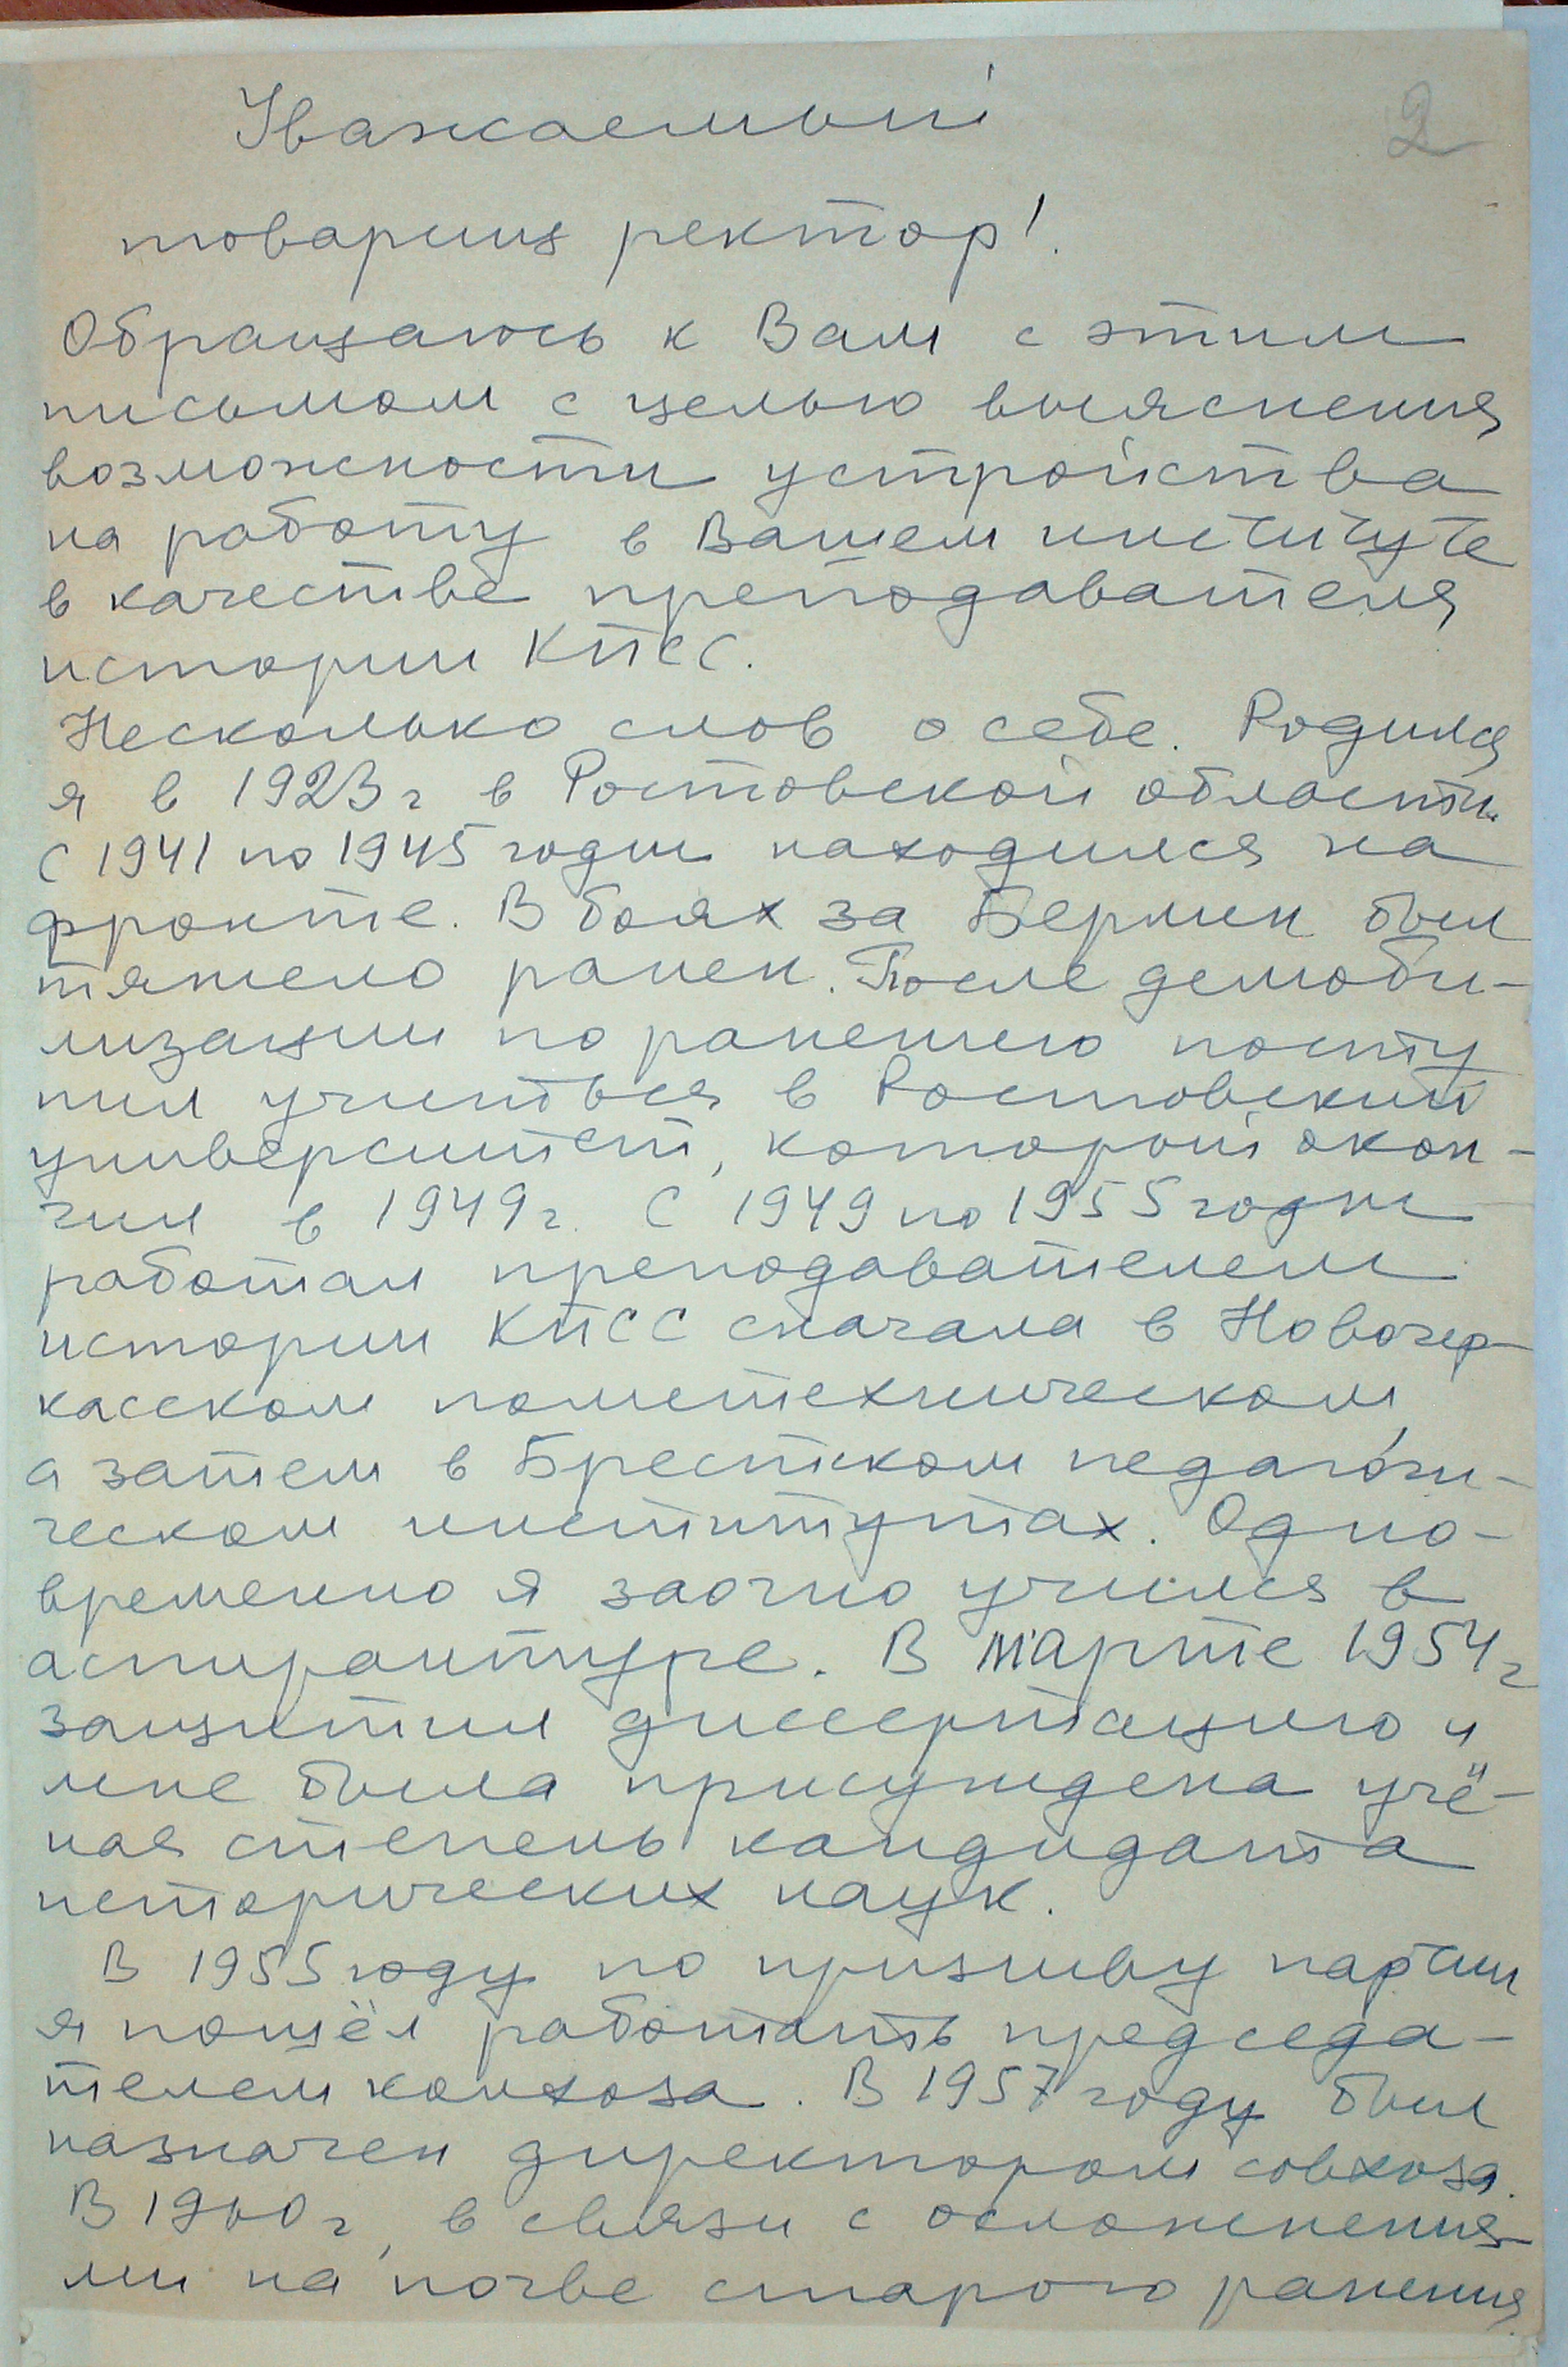 2
Уважаемый
товарищ ректор!
Обращаюсь к Вам с этим
письмом с целью выяснения
возможности устройства
на работу в Вашем институте
в качестве преподавателя
истории КПСС.
Несколько слов о себе. Родился
я в 1923 г в Ростовской области.
С 1941 по 1945 годы находился на
фронте. В боях за Берлин был
тяжело ранен. После демоби-
лизации по ранению посту
пил учиться в Ростовский
университет, который окон-
чил в 1949 г. С 1949 по 1955 годы
работал преподавателем
истории КПСС сначала в Новочер-
касском политехническом,
а затем в Брестском педагоги-
ческом институтах. Одно-
временно я заочно учился в
аспирантуре. В марте 1954 г
защитил диссертацию и
мне была присуждена учё-
ная степень кандидата
исторических наук.
В 1955 году по призыву партии
я пошёл работать председа-
телем колхоза. В 1957 году был
назначен директором совхоза.
В 1960 г, в связи с осложнения-
ми на почве старого ранения